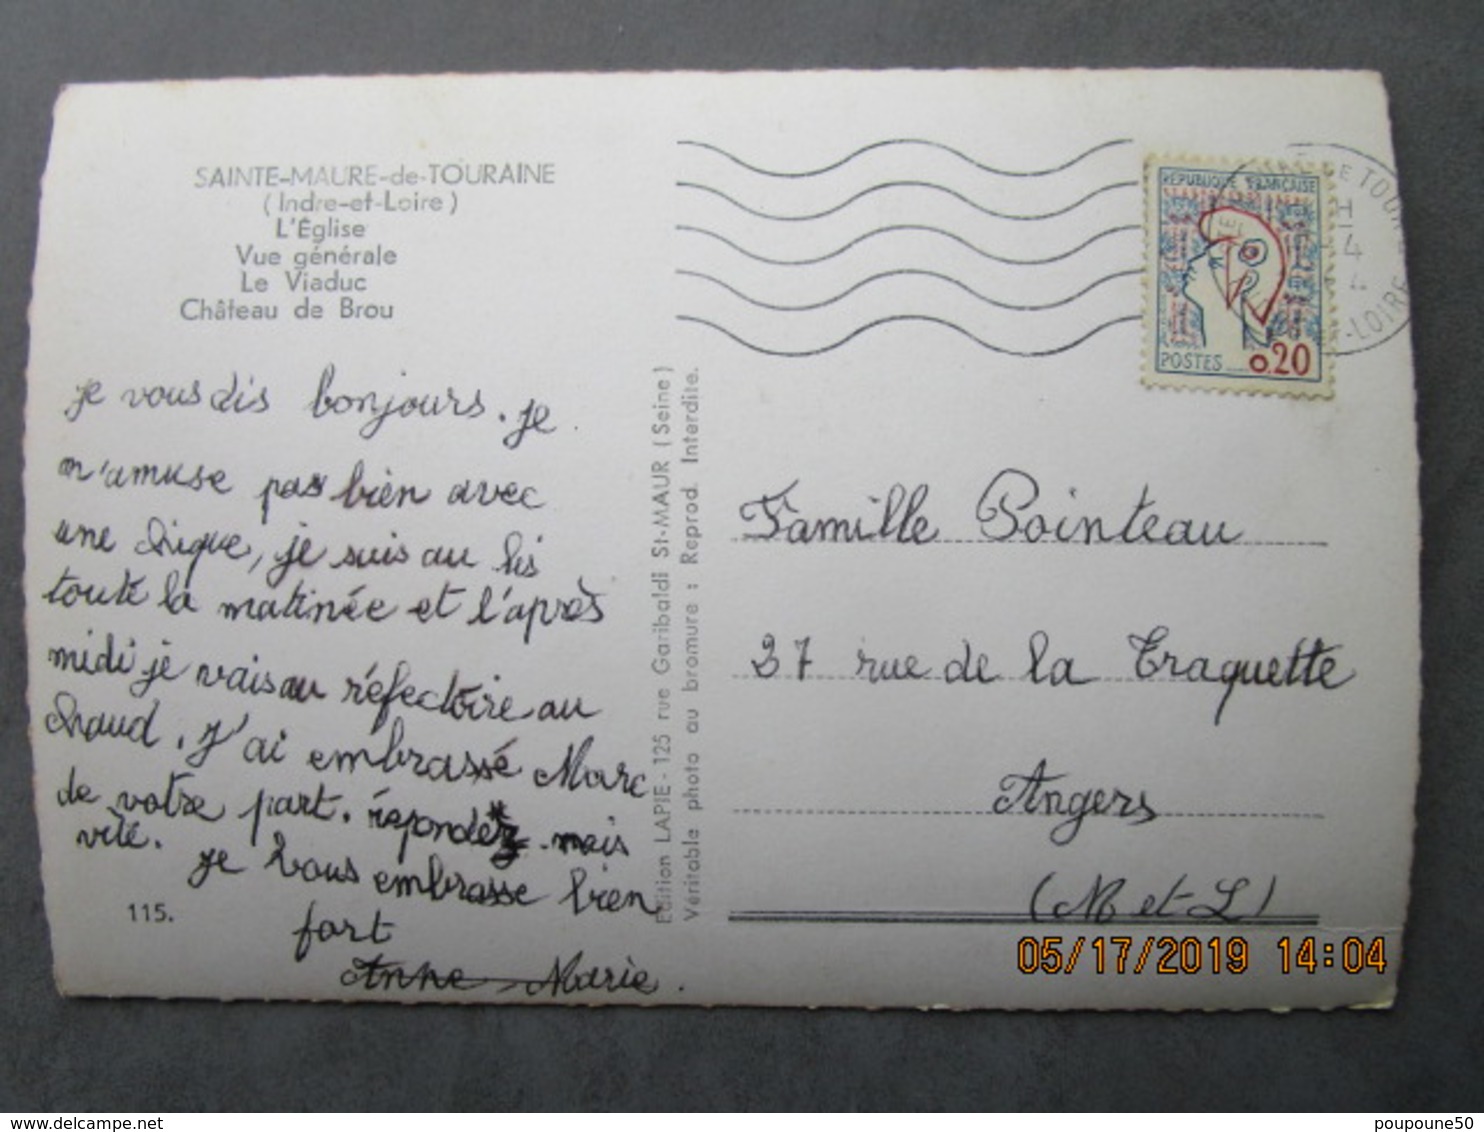 SAINTE-MAURE-de-TOURAINE
(Indre-et-Loire)
L'Église
Vue générale
Le Viaduc
Château de Brou
je vous dis bonjours. je
m'amuse pas bien avec
une chique, je suis au lis
toute la matinée et l'après
midi je vais au réfectoire au
chaud. J'ai embrassé Marc
de votre part. répondez mais
vite.
je vous embrasse bien
fort
Anne-Marie.
115.
Edition LAPIE - 125 rue Garibaldi St-MAUR (Seine)
Véritable photo au bromure : Reprod. Interdite.
REPUBLIQUE FRANÇAISE
POSTES 0.20
DE TOUR
-LOIRE
Famille Pointeau
27 rue de la Traquette
Angers
(M et L)
05/17/2019 14:04
poupoune50